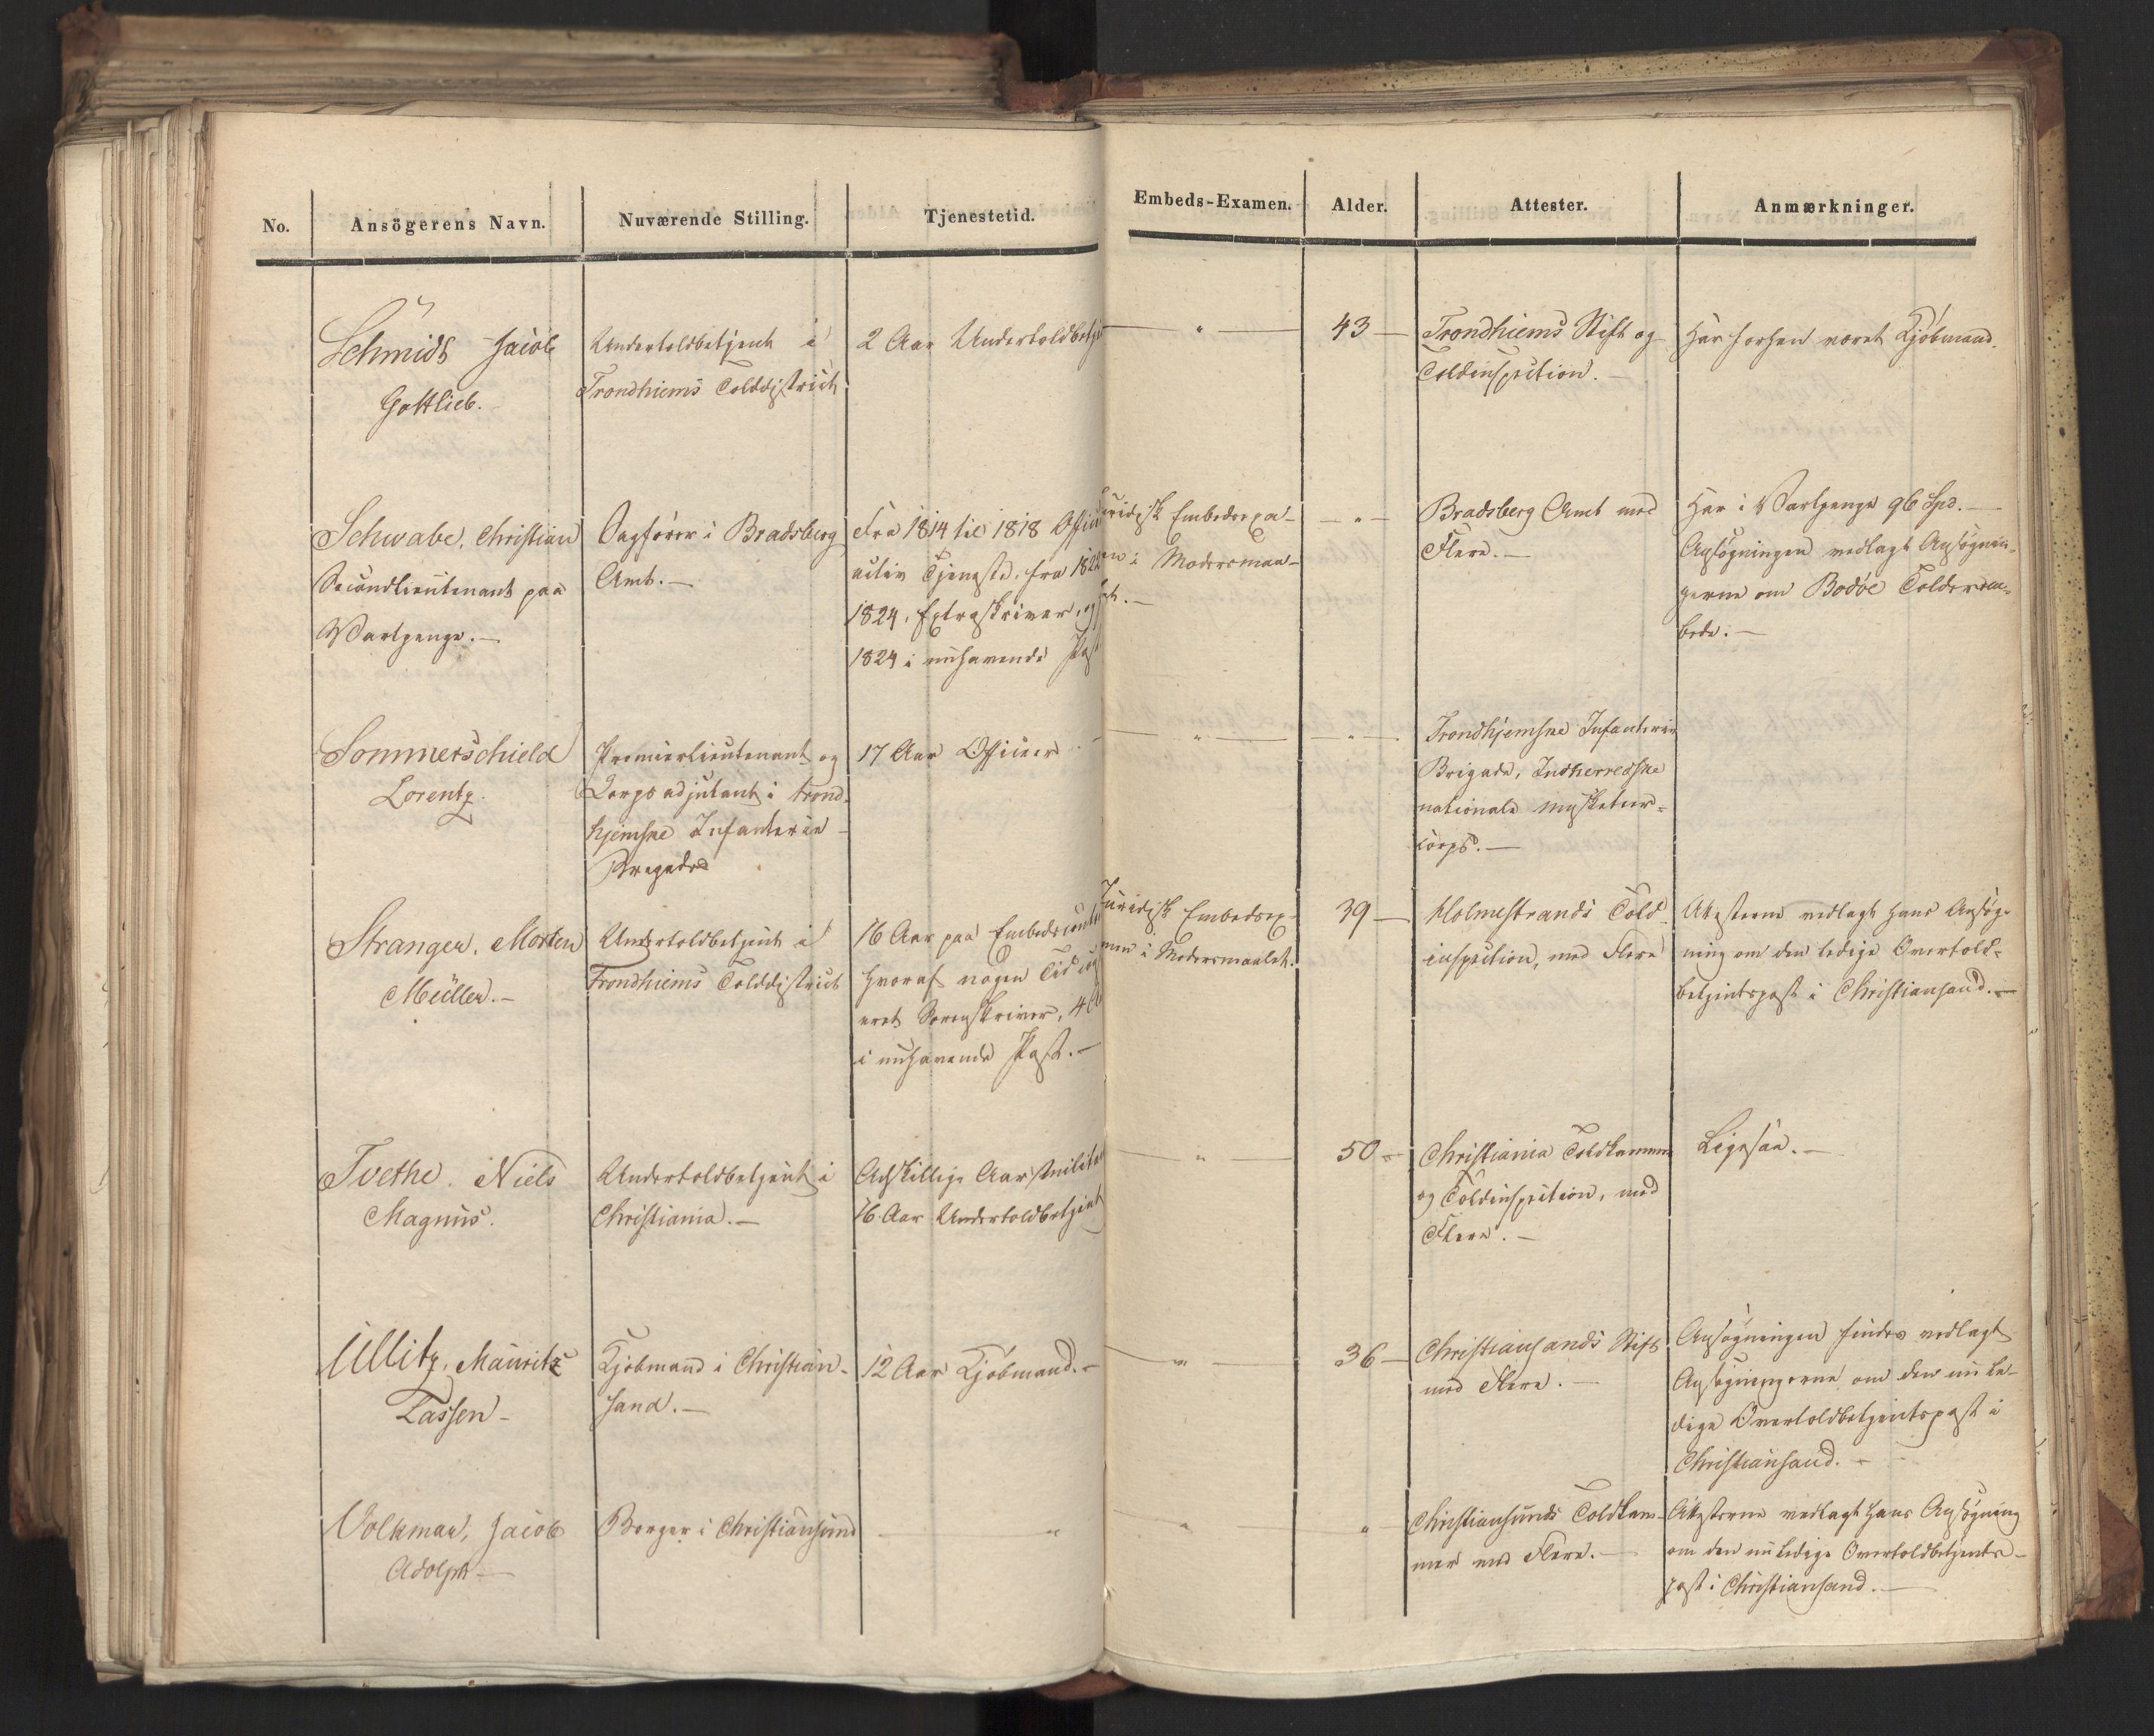 No. Ansögerens Navn. Nuværende Stilling. Tjenestetid. Embeds-Examen. Alder. Attester. Anmærkninger.
Schmidt Jacob
Gottlieb.
Undertoldbetjent i
Trondhiems Tolddistrict
2 Aar Undertoldbetje
"
43 —
Trondhiems Stift og
Toldinspection. —
Har forhen været Kjöbmand.
Schwabe, Christian
Secondlieutenant paa
Vartpenge. —
Sagförer i Bradsberg
Amt. —
Fra 1814 til 1818 Offi
activ Tjeneste, fra 1822
1824, Extraskriver, og
1824 i nuhavende Post
Juridisk Embedsexa-
en i Modersmaa-
let. —
— " —
Bradsberg Amt med
Flere. —
Har i Vartpenge 96 Spd. —
Ansögningen vedlagt Ansögnin-
gerne om Bodöe Tolderem-
bede. —
Sommerschield
Lorentz.
Premierlieutenant og
Corpsadjutant i trond-
hjemske Infanterie-
Bregade
17 Aar Officeer
"
— " —
Trondhjemske Infanterie
Brigade, Indherredske
nationale musketeer-
corps. —
Stranger, Morten
Müller. —
Undertoldbetjent i
Trondhiems Tolddistrict
16 Aar paa Embedscont
hvoraf nogen Tid co
eret Sorenskriver, 4 A
i nuhavende Post. —
Juridisk Embedsex-
men i Modersmaalet.
39 —
Holmestrands Told-
inspection, med Flere
Attesterne vedlagt hans Ansög-
ning om den ledige Overtold-
betjentspost i Christiansand. —
Tvethe, Niels
Magnus.
Undertoldbetjent i
Christiania. —
Adskillige Aar Militai
16 Aar Undertoldbetjent
"
50 —
Christiania Toldkammer
og Toldinspection, med
Flere. —
Ligesaa. —
Ullitz, Mauritz
Lassen —
Kjöbmand i Christian-
sand. —
12 Aar Kjöbmand. —
"
36 —
Christiansands Stift
med Flere. —
Ansögningen findes vedlagt
Ansögningerne om den nu le-
dige Overtoldbetjentspost i
Christiansand. —
Volkmar, Jacob
Adolph —
Borger i Christiansund
"
"
"
Christiansunds Toldkam-
mer med Flere. —
Attesterne vedlagt hans Ansögning
om den nu ledige Overtoldbetjents-
post i Christiansand. —